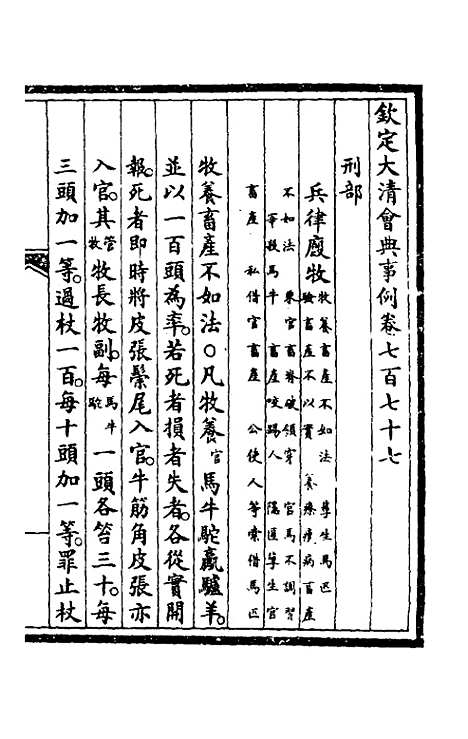 欽定大清會典事例卷七百七十七
刑部
兵律廄牧 牧養畜產不如法 孳生馬匹 驗畜產不以實 養療瘦病畜產
不如法 乘官畜脊破領穿 官馬不調習
宰殺馬牛 畜產咬踢人 隱匿孳生官
畜產 私借官畜產 公使人等索借馬匹
牧養畜產不如法○凡牧養官馬牛駝驘驢羊。
並以一百頭為率。若死者損者失者。各從實開
報。死者即時將皮張鬃尾入官。牛筋角皮張亦
入官。其管牧牧長牧副。每馬牛駝一頭各笞三十。每
三頭加一等。過杖一百。每十頭加一等。罪止杖